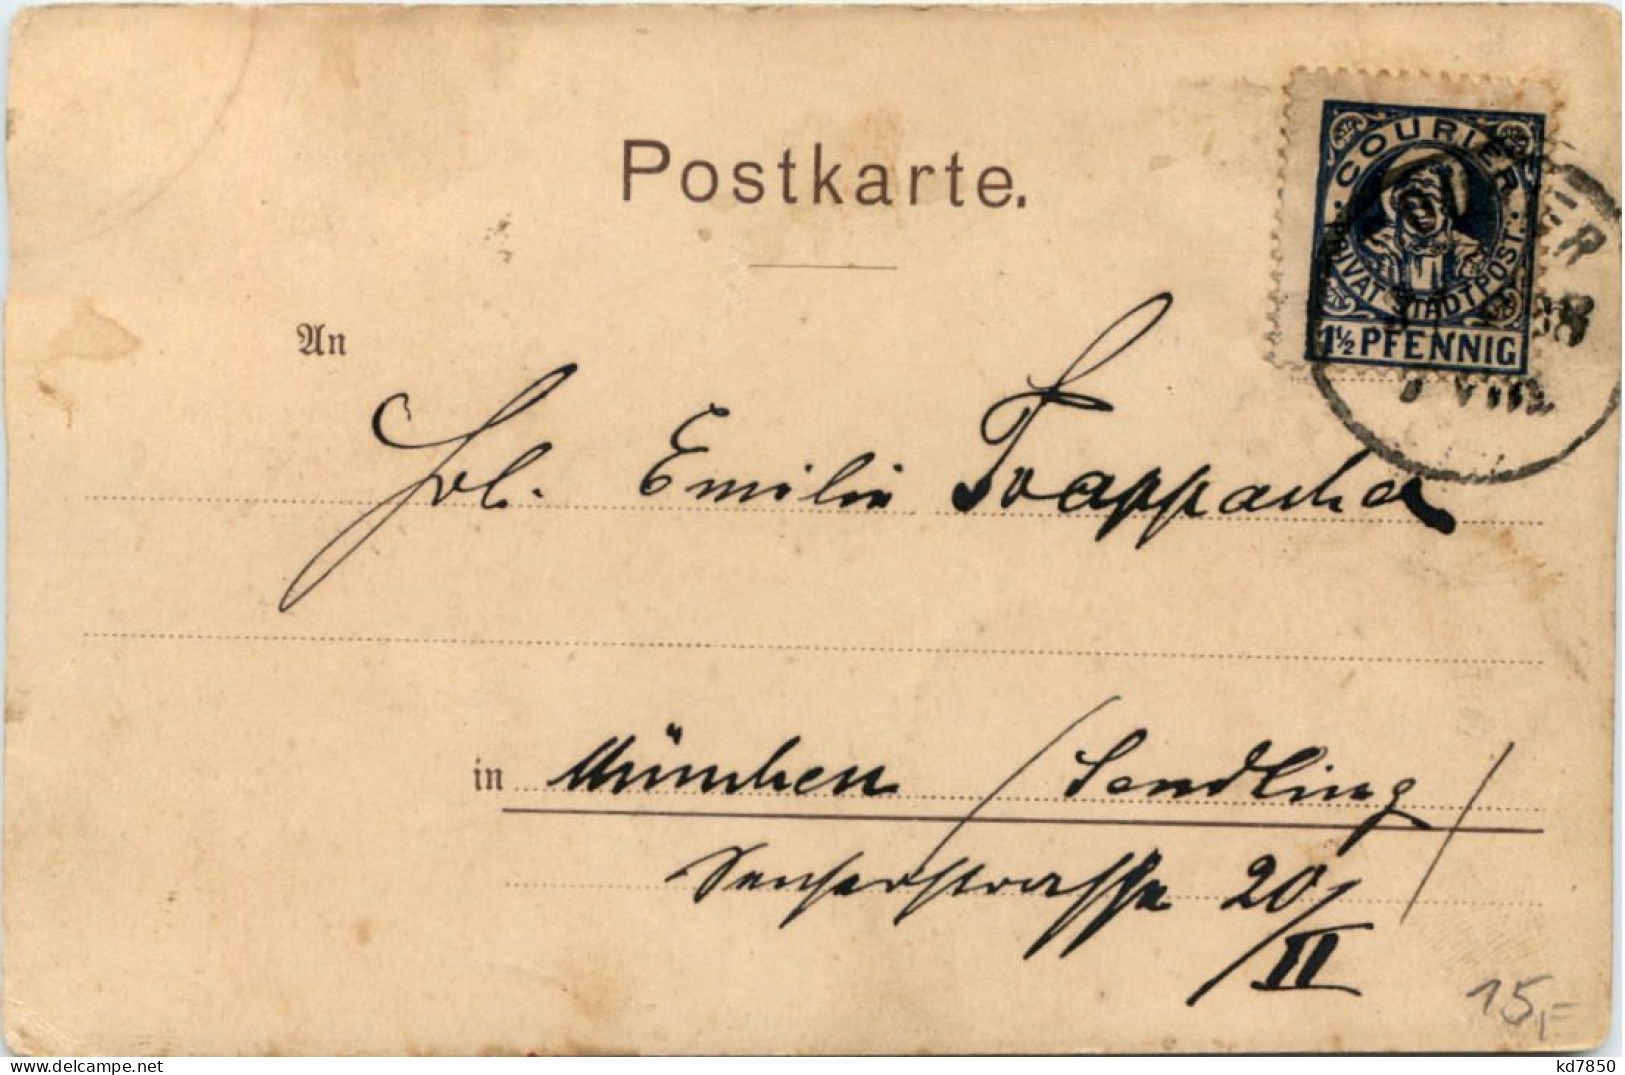 Postkarte.
COURIER
PRIVAT STADTPOST.
1½ PFENNIG
An
Frl. Emilie Trappacher
in München / Sendling /
20/
II
15,-
kd7850